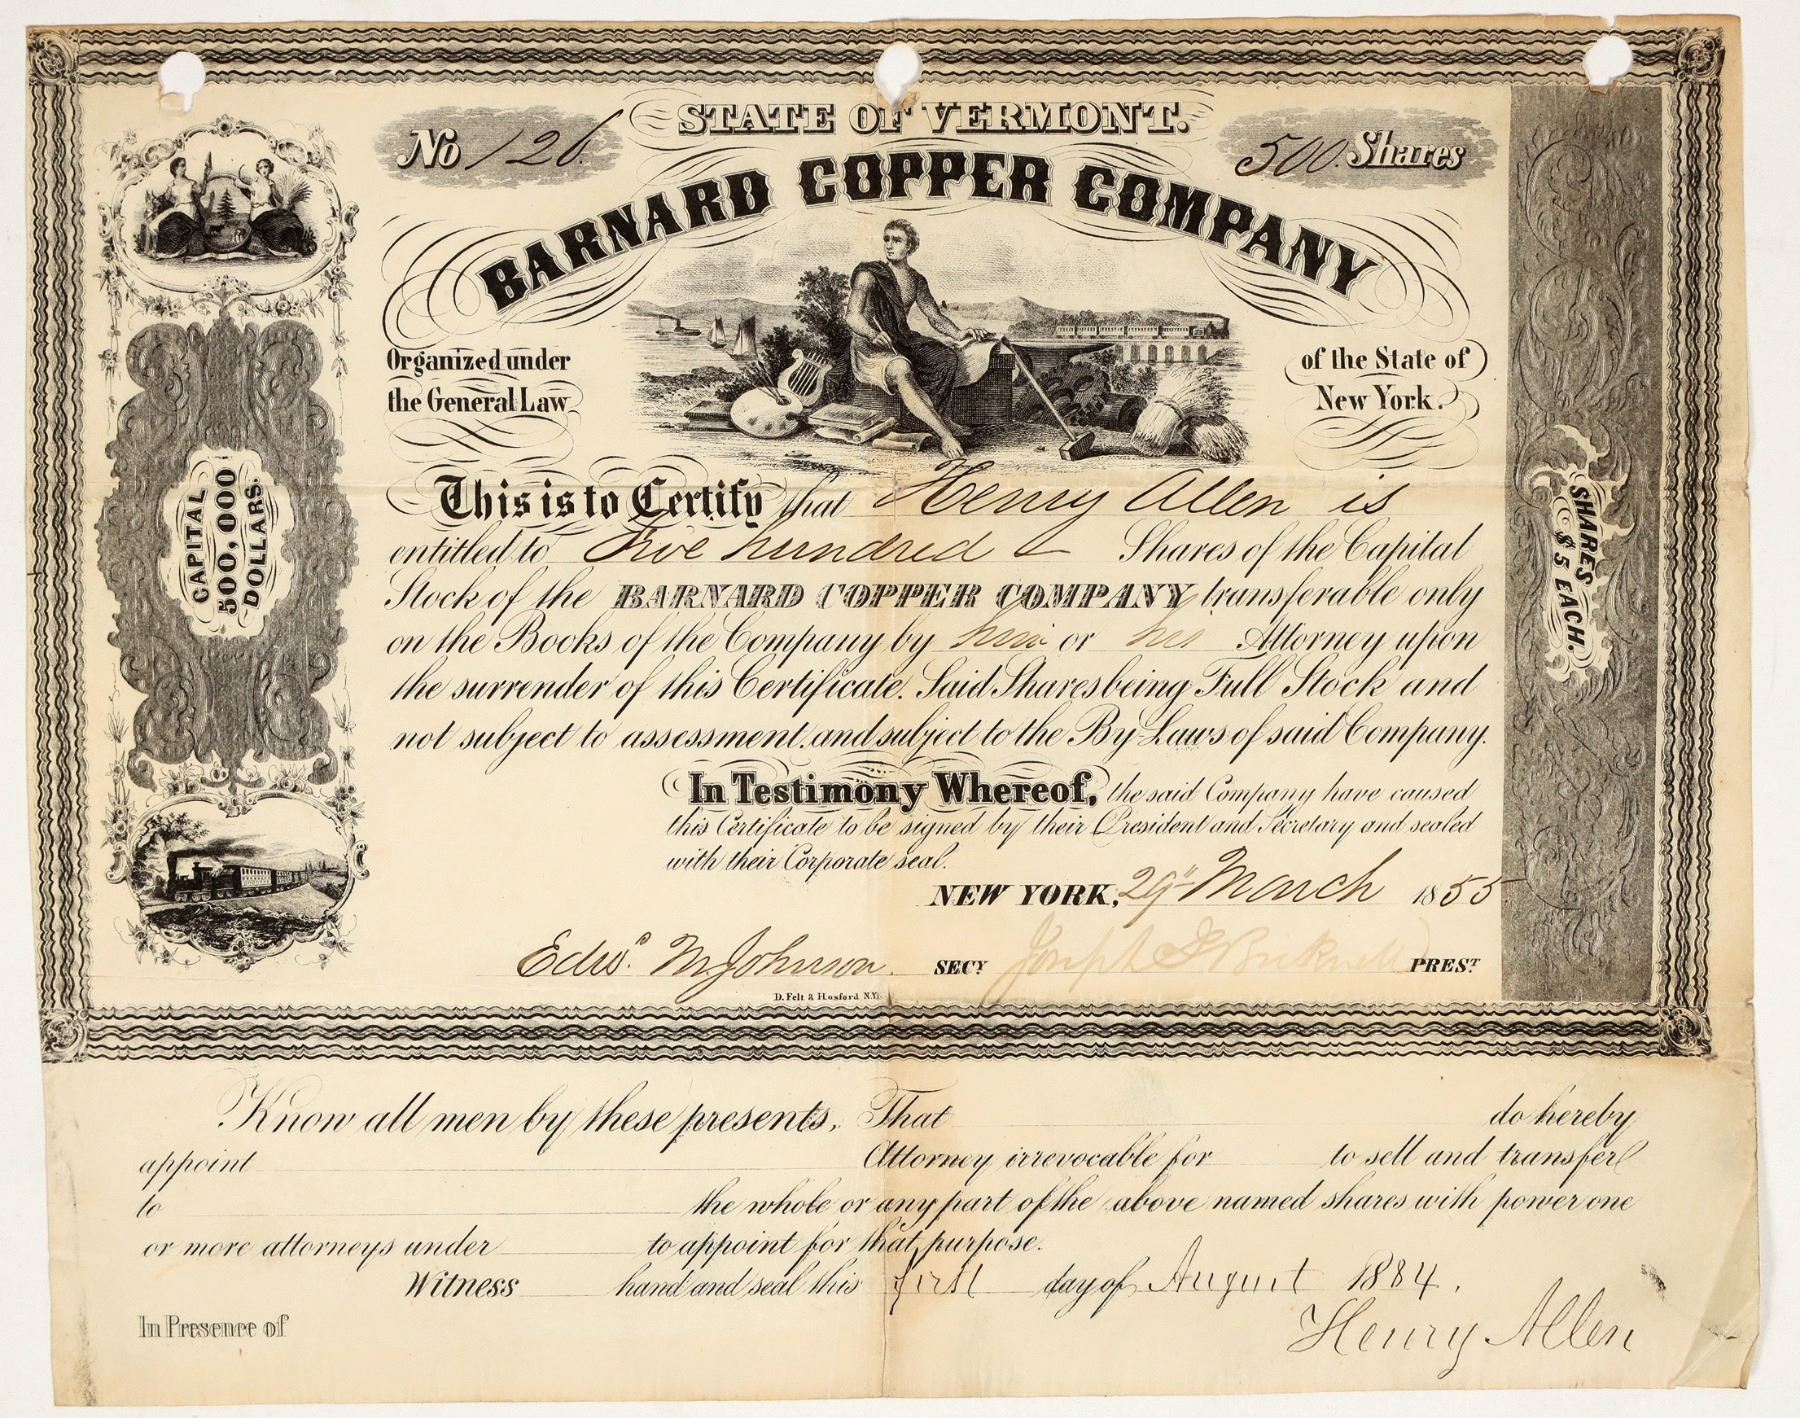 STATE OF VERMONT.
No 126. 500. Shares
BARNARD COPPER COMPANY
Organized under of the State of
the General Law New York.
This is to Certify that Henry Allen is
entitled to Five hundred Shares of the Capital
Stock of the BARNARD COPPER COMPANY transferable only
on the Books of the Company by him or his Attorney upon
the surrender of this Certificate. Said Shares being Full Stock and
not subject to assessment. and subject to the By Laws of said Company.
In Testimony Whereof, the said Company have caused
this Certificate to be signed by their President and Secretary and sealed
with their Corporate seal.
NEW YORK, 29th March 1855
Edwd. M Johnson. SECY Joseph PREST
D. Felt & Hosford N.Y.
CAPITAL
500,000
DOLLARS.
SHARES
$5 EACH.
Know all men by these presents, That do hereby
appoint Attorney irrevocable for to sell and transfer
to the whole or any part of the above named shares with power one
or more attorneys under to appoint for that purpose.
Witness hand and seal this first day of August 1884.
In Presence of
Henry Allen